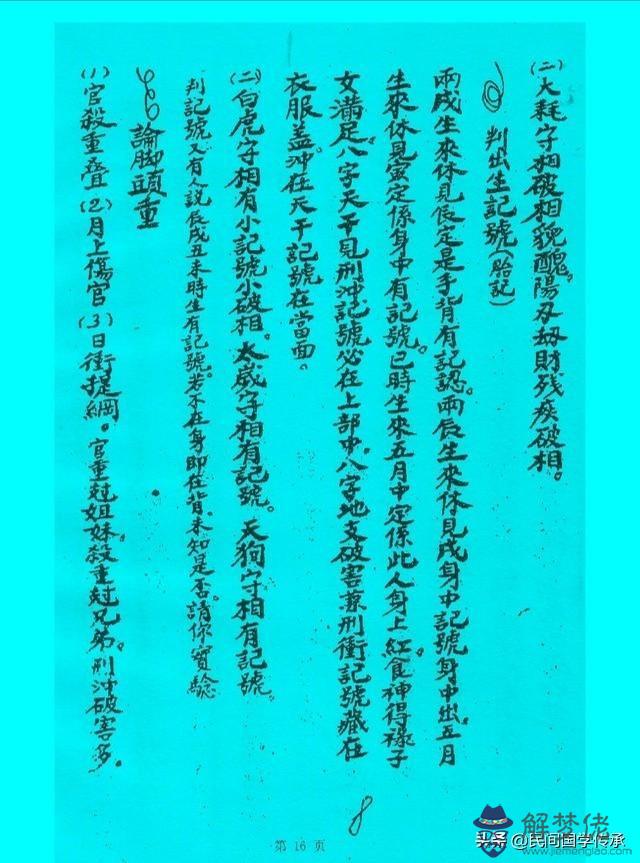 (二)大耗守相破相貌醜。陽刃劫財残疾破相。
判出生記號(胎記)
兩戌生來休見辰定是手背有記認。兩辰生來休見戌身中記號身中出。五月
生來休見寅定係身中有記號。巳時生來五月中定係此人身上紅。食神得祿子
女滿足。八字天干見刑沖記號必在上部中。八字地支破害兼刑衝記號藏在
衣服蓋。沖在天干記號在當面。
(二)白虎守相有小記號小破相。太歲守相有記號。天狗守相有記號。
判記號又有人說辰戌丑未時生有記號。若不在身即在背。未知是否。請你實驗
論脚頭重
(1)官殺重叠(2)月上傷官(3)日衝提綱。官重尅姐妹。殺重尅兄弟。刑沖破害多。
8
第 16 页
头条 @民间国学传承
解梦佬
www.jiemenglao.com